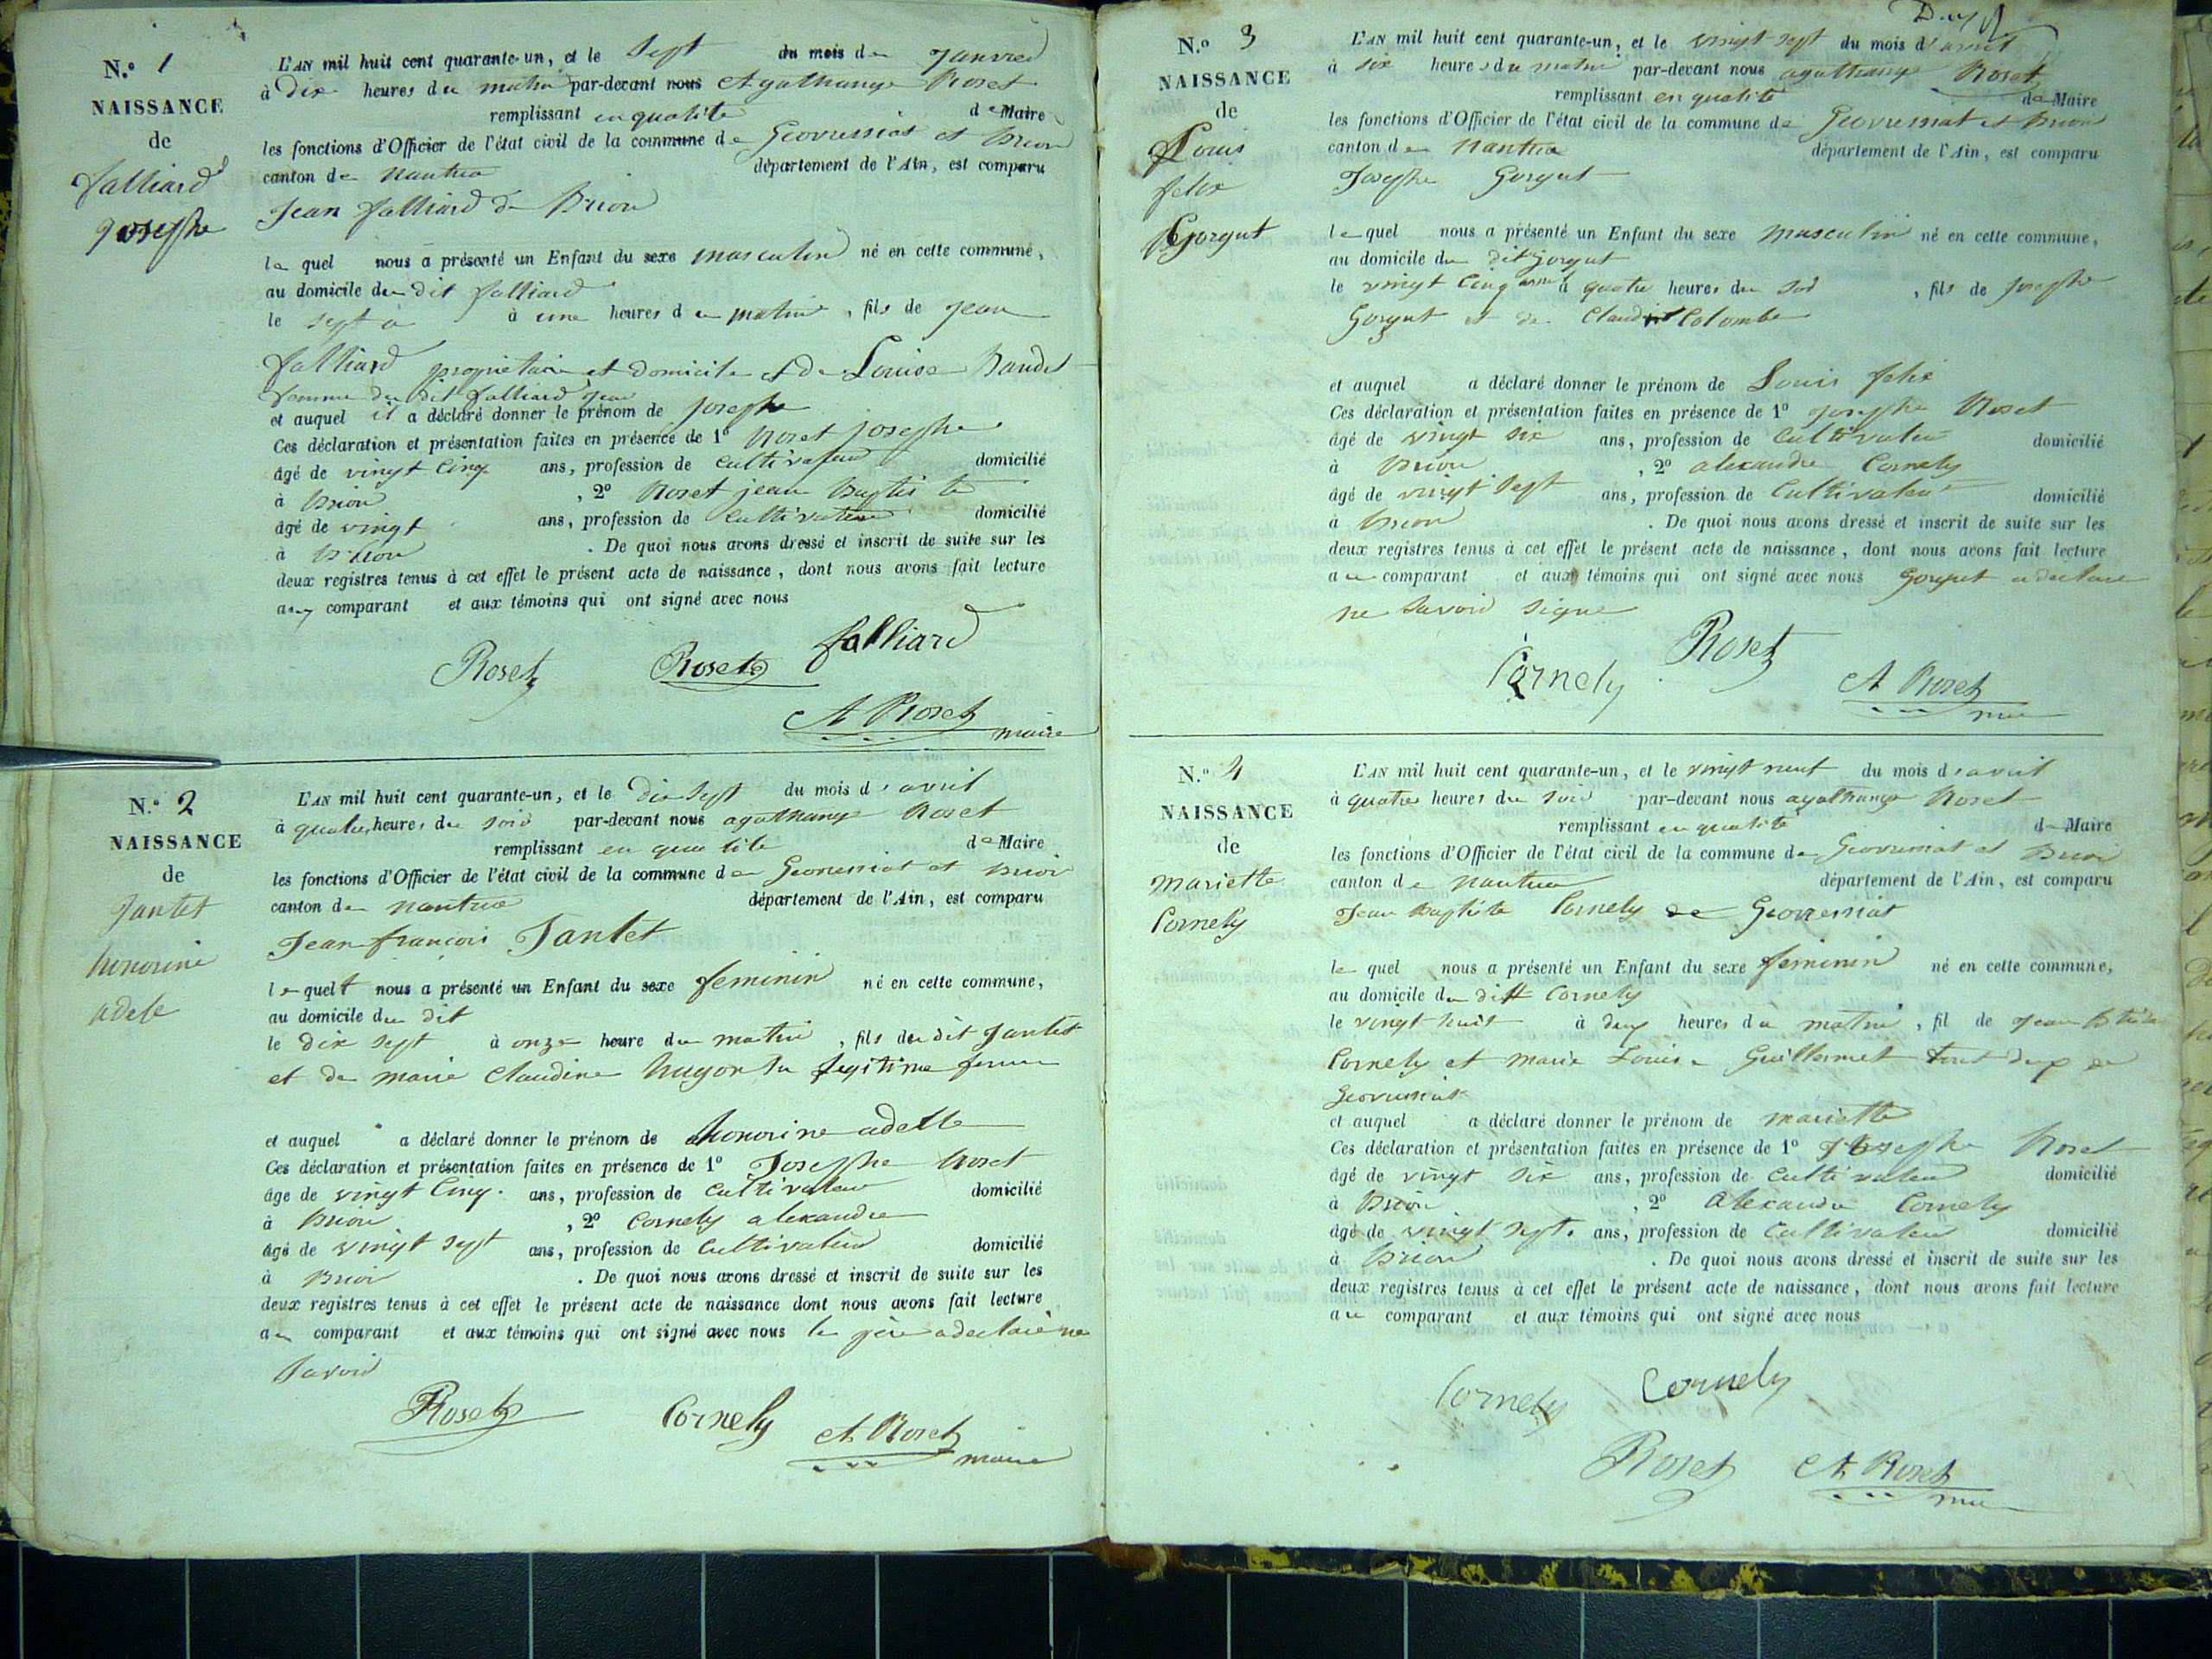 N.º 1
NAISSANCE
de
falliard
josephe
L'AN mil huit cent quarante-un, et le sept du mois de janvier
à dix heures du matin par-devant nous Agathange Roset
remplissant en qualité de Maire
les fonctions d'Officier de l'état civil de la commune de Geovressiat et Brion
canton de nantua département de l'Ain, est comparu
Jean falliard de Brion
le quel nous a présenté un Enfant du sexe masculin né en cette commune,
au domicile du dit falliard
le sept a à une heures du matin, fils de jean
falliard propriétaire et domicile et de Louise
femme du dit falliard jean
et auquel il a déclaré donner le prénom de josephe
Ces déclaration et présentation faites en présence de 1º Roset josephe
âgé de vingt cinq ans, profession de cultivateur domicilié
à Brion, 2º Roset jean baptis te
âgé de vingt ans, profession de cultivateur domicilié
à Brion. De quoi nous avons dressé et inscrit de suite sur les
deux registres tenus à cet effet le présent acte de naissance, dont nous avons fait lecture
aux comparant et aux témoins qui ont signé avec nous
falliard
Roset Roset
A Roset
maire
N.º 2
NAISSANCE
de
Jantet
honorine
adele
L'AN mil huit cent quarante-un, et le dix sept du mois d'avril
à quatre heures du soir par-devant nous agathange Roset
remplissant en qua lité de Maire
les fonctions d'Officier de l'état civil de la commune de Geovressiat et Brion
canton de nantua département de l'Ain, est comparu
Jean françois Jantet
le quel nous a présenté un Enfant du sexe feminin né en cette commune,
au domicile du dit
le dix sept à onze heure du matin, fils du dit Jantet
et de marie claudine hugon sa legitime femme
et auquel a déclaré donner le prénom de honorine adelle
Ces déclaration et présentation faites en présence de 1º Josephe Roset
âge de vingt cinq. ans, profession de cultivateur domicilié
à Brion, 2º Cornely alexandre
âgé de vingt sept ans, profession de cultivateur domicilié
à Brion. De quoi nous avons dressé et inscrit de suite sur les
deux registres tenus à cet effet le présent acte de naissance dont nous avons fait lecture
au comparant et aux témoins qui ont signé avec nous le père a declaré ne
savoir
Roset Cornely A. Roset
maire
N.º 3
NAISSANCE
de
Louis
felix
Gorgut
L'AN mil huit cent quarante-un, et le vingt sept du mois d'avril
à six heures du matin par-devant nous agathange Roset
remplissant en qualité de Maire
les fonctions d'Officier de l'état civil de la commune de Geovressiat et Brion
canton de nantua département de l'Ain, est comparu
Josephe Gorgut
le quel nous a présenté un Enfant du sexe masculin né en cette commune,
au domicile du dit gorgut
le vingt cinq avril à quatre heures du soir, fils de josephe
Gorgut et de Claudine Colombe
et auquel a déclaré donner le prénom de Louis felix
Ces déclaration et présentation faites en présence de 1º josephe Roset
âgé de vingt six ans, profession de cultivateur domicilié
à Brion, 2º alexandre Cornely
âgé de vingt sept ans, profession de cultivateur domicilié
à Brion. De quoi nous avons dressé et inscrit de suite sur les
deux registres tenus à cet effet le présent acte de naissance, dont nous avons fait lecture
au comparant et aux témoins qui ont signé avec nous Gorgut a declare
ne savoir signe
Roset
Cornely
A Roset
N.º 4
NAISSANCE
de
mariette
Cornely
L'AN mil huit cent quarante-un, et le vingt neuf du mois d'avril
à quatre heures du soir par-devant nous agathange Roset
remplissant en qualité de Maire
les fonctions d'Officier de l'état civil de la commune de Geovressiat et Brion
canton de nantua département de l'Ain, est comparu
Jean Baptiste Cornely de Geovressiat
le quel nous a présenté un Enfant du sexe feminin né en cette commune,
au domicile du dit Cornely
le vingt huit à deux heures du matin, fil de jean
Cornely et marie Louise Guillermet tout deux de
Geovressiat
et auquel a déclaré donner le prénom de mariette
Ces déclaration et présentation faites en présence de 1º Josephe Roset
âgé de vingt six ans, profession de cultivateur domicilié
à Brion, 2º alexandre Cornely
âgé de vingt sept. ans, profession de cultivateur domicilié
à Brion. De quoi nous avons dressé et inscrit de suite sur les
deux registres tenus à cet effet le présent acte de naissance, dont nous avons fait lecture
au comparant et aux témoins qui ont signé avec nous
Cornely Cornely
Roset A Roset